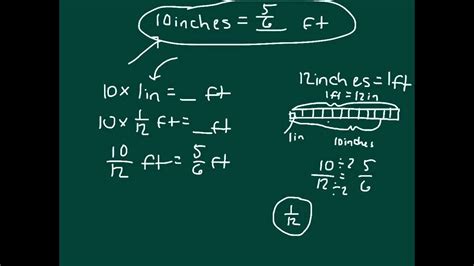 10inches = 5/6 ft
10 x 1in = _ ft
10 x 1/12 ft = _ ft
10/12 ft = 5/6 ft
12inches = 1ft
1ft = 12in
1in
10inches
10/12 ÷2/÷2 = 5/6
1/12